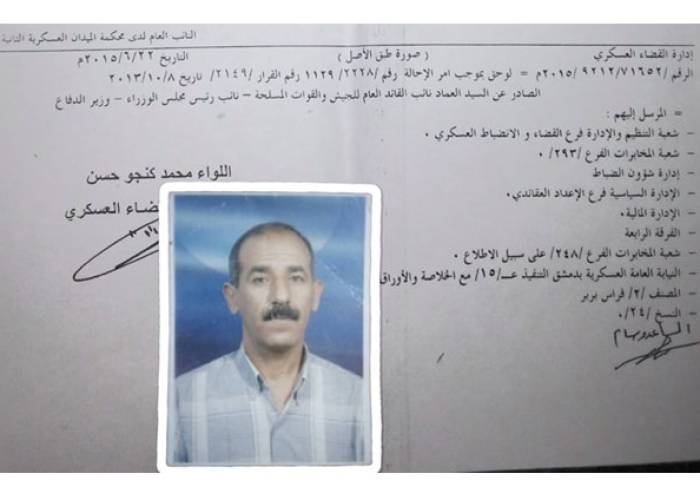 النائب العام لدى محكمة الميدان العسكرية الثانية
إدارة القضاء العسكري ( صورة طبق الأصل ) التاريخ ٢٠١٥/٦/٢٢م
الرقم /٩٢١٢/٧١٦٥٢ /٢٠١٥م = لوحق بموجب امر الإحالة رقم/٢٢٢٨/ ١١٢٩ رقم القرار /٢١٤٩/ تاريخ ٢٠١٣/١٠/٨م
الصادر عن السيد العماد نائب القائد العام للجيش والقوات المسلحة – نائب رئيس مجلس الوزراء – وزير الدفاع
= المرسل إليهم :
– شعبة التنظيم والإدارة فرع القضاء و الانضباط العسكري ٠
– شعبة المخابرات الفرع /٢٩٣/ ٠
– إدارة شؤون الضباط
– الإدارة السياسية فرع الإعداد العقائدي٠
– الإدارة المالية٠
– الفرقة الرابعة
– شعبة المخابرات الفرع /٢٤٨/ على سبيل الاطلاع ٠
– النيابة العامة العسكرية بدمشق التنفيذ عـــ/١٥/ مع الخلاصة والأوراق
– المصنف /٢/ فراس بربر
– النسخ /٢٤/٠
اللواء محمد كنجو حسن
ضاء العسكري